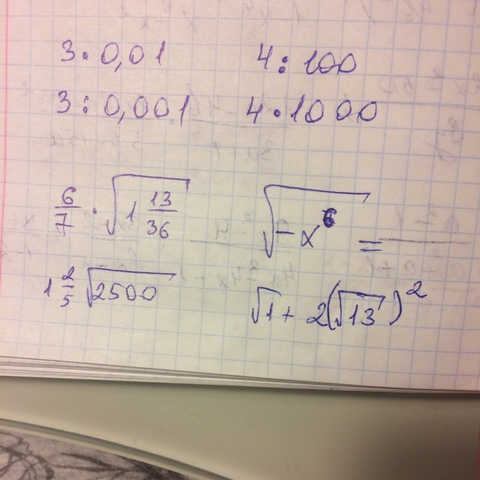 3 · 0,01 4 : 100
3 : 0,001 4 · 1000
6/7 · √(1 13/36) √(-x⁶) =
1 2/5 √2500 √1 + 2(√13)²